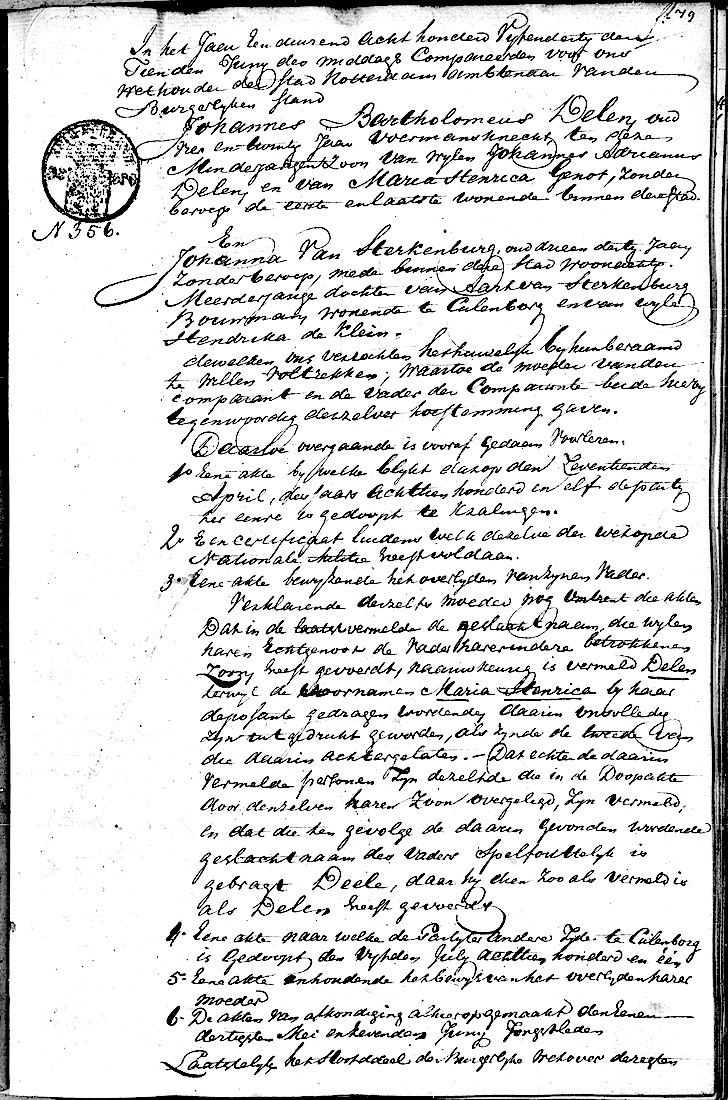 279
In het Jaar Een duizend acht honderd Vijfendertig den
Tienden Juny des middags Compareerden voor ons
Wethouder der Stad Rotterdam Ambtenaar van den
Burgerlyken Stand
Johannes Bartholomeus Delen, oud
vier en twintig Jaar Voermansknecht, ten dezen
Minderjarige Zoon van wylen Johannes Adrianus
Delen, en van Maria Henrica Genot, zonder
beroep de eerste en laatste wonende binnen deze Stad.
N 356.
En
Johanna Van Sterkenburg, oud drie en dertig Jaar
Zonder beroep, mede binnen deze Stad woonachtig
Meerderjarige dochter van Aart van Sterkenburg
Bouwman, wonende te Culenborg en van wyle
Hendrika de Klein.
dewelken ons verzochten het huwelyk by hun beraamd
te willen voltrekken, waartoe de moeder van den
comparant en de vader der Comparante beide hierby
tegenwoordig derzelver toestemming gaven.
Daartoe overgaande is vooraf gedaan Voorlezen.
1o Eene akte by welke blykt dat op den Zeventienden
April, des Jaars Achttien honderd en elf de party
ter eenre is gedoopt te Kralingen.
2o Een certificaat luidens welk dezelve der wet op de
Nationale Militie heeft voldaan.
3o Eene akte bewyzende het overlyden van zynen Vader.
Verklarende dezelfs moeder nog omtrent die akten
Dat in de laatst vermelde de geslachtnaam, die wylen
haren Echtgenoot de Vader harer in deze betrokkenen
Zoon, heeft gevoerd, naauwkeurig is vermeld Delen
terwyl de voornamen Maria Henrica by haar
deposante gedragen wordende, daarin onvolledig
zyn uitgedrukt geworden, als zynde de tweede van
die daarin achtergelaten. - Dat echter de daarin
vermelde personen zyn dezelfde die in de Doopakte
door denzelven haren Zoon overgelegd, zyn vermeld;
en dat die ten gevolge de daarin gevonden wordende
geslachtnaam des Vaders spelfoutelyk is
gebragt Deele, daar hy dien zoo als vermeld is
als Delen heeft gevoerd.
4o Eene akte naar welke de Partyter andere Zyde te Culenborg
is Gedoopt den Vyfden July achttien honderd en één
5o Eene akte inhoudende het bewys van het overlyden harer
moeder
6o De akten van afkondiging alhier opgemaakt den Eenen
dertigsten Mei en Zevenden Juny Jongstleden
Laatstelyk het Hoofddeel der Burgerlyke Wet over de regten